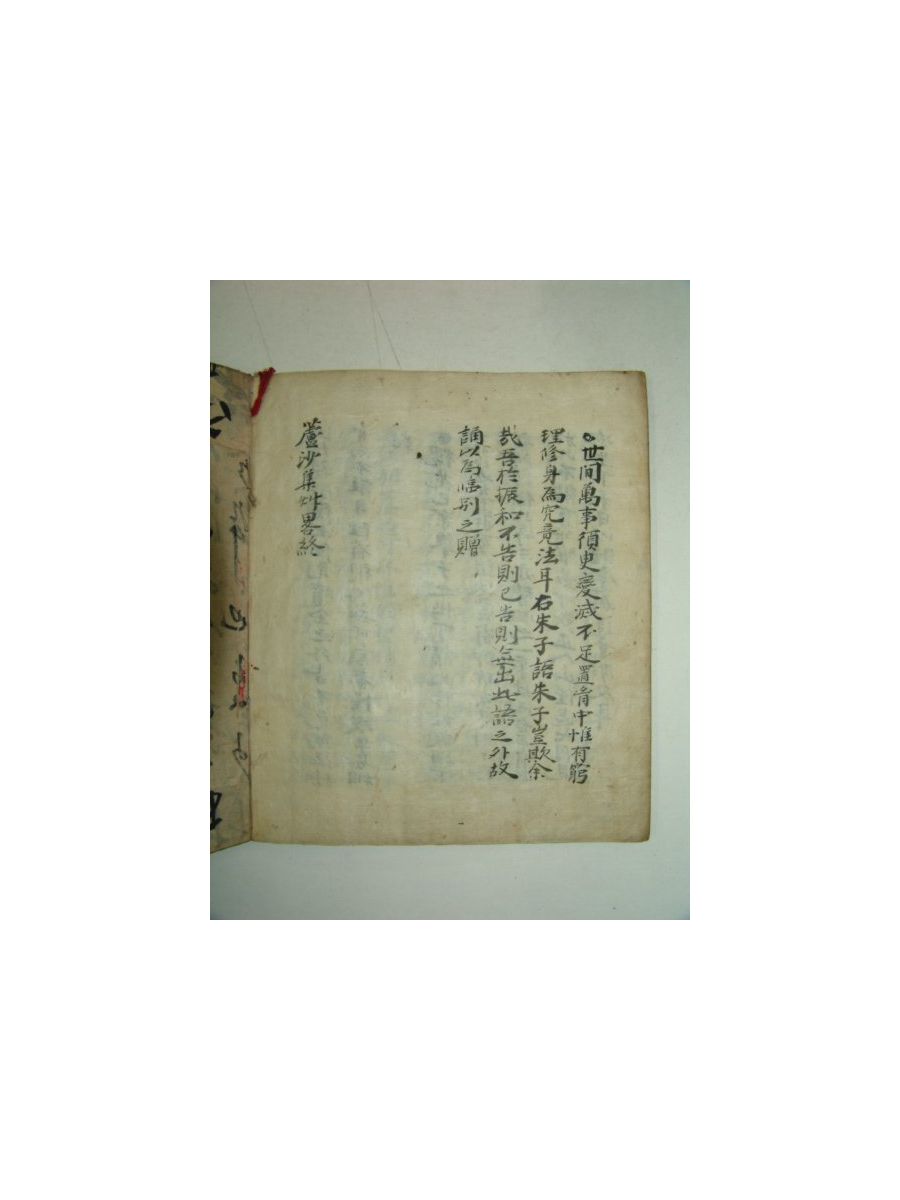 世间萬事須臾變滅不足置胷中惟有窮
理修身爲究竟法耳右朱子語朱子豈欺余
哉吾於振和不告則已告則無出此語之外故
誦以爲臨別之贈
蘆沙集艸畧終